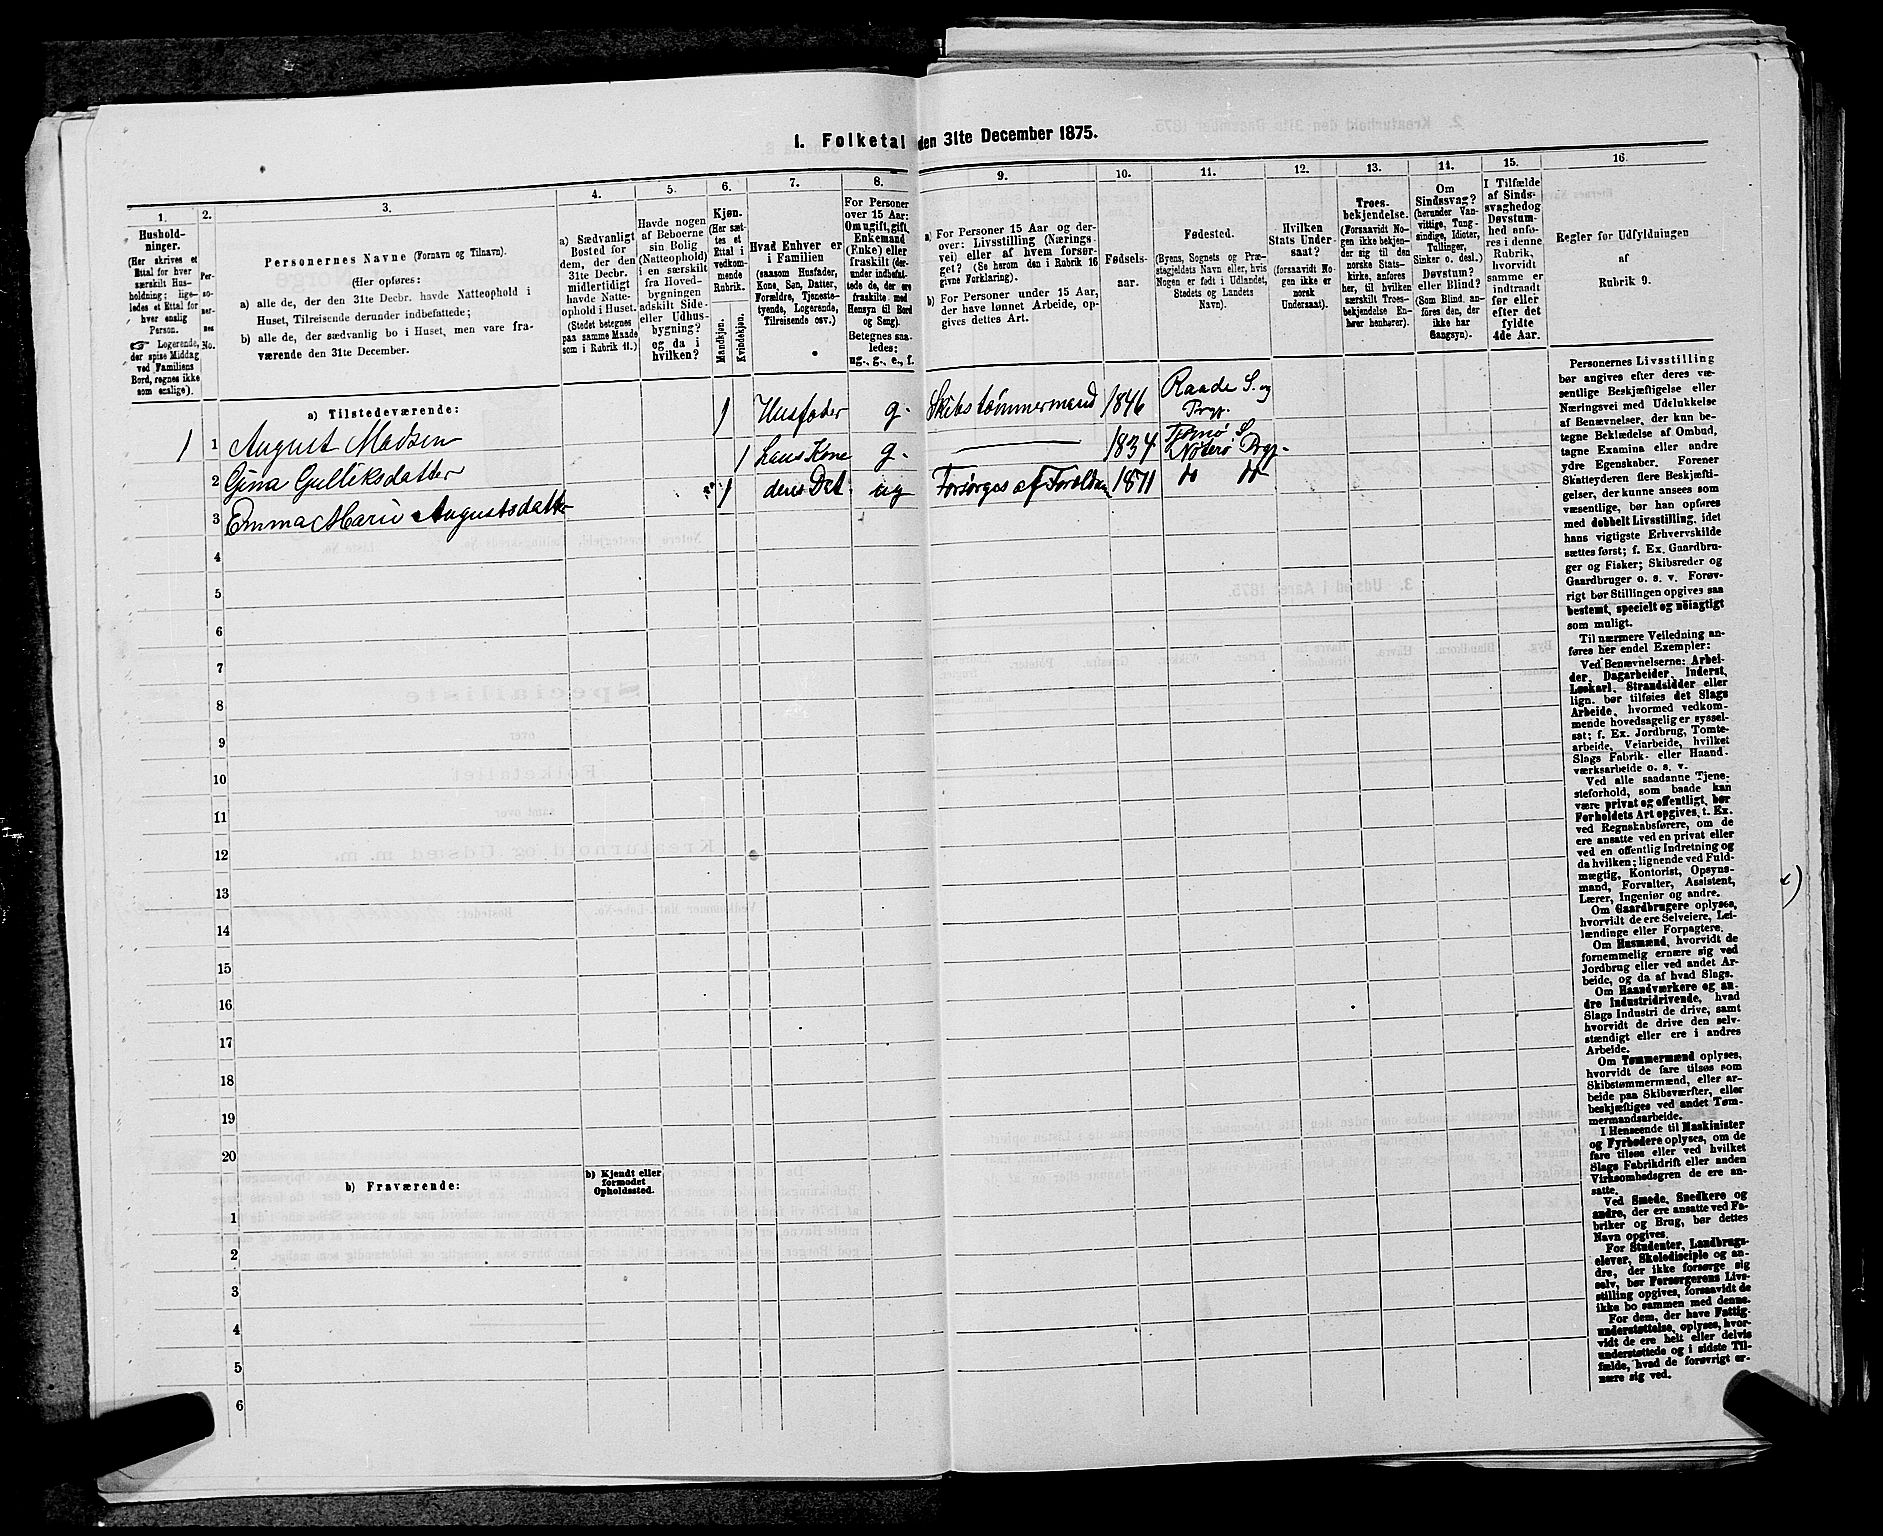 1. Folketal den 31te December 1875.
1.
Hushold-
ninger.
(Her skrives et
Ettal for hver
særskilt Hus-
holdning; lige-
ledes et Ettal for
hver enslig
Person.
☞ Logerende,
der spise Middag
ved Familiens
Bord, regnes ikke
som enslige).
2.
Per-
so-
ner-
nes
No.
3.
Personernes Navne (Fornavn og Tilnavn).
(Her opføres:
a) alle de, der den 31te Decbr. havde Natteophold i
Huset, Tilreisende derunder indbefattede;
b) alle de, der sædvanlig bo i Huset, men vare fra-
værende den 31te December.
4.
a) Sædvanligt
Bosted for
dem, der den
31te Decbr.
midlertidigt
havde Natte-
ophold i Huset.
(Stedet betegnes
paa samme Maade
som i Rubrik 11.)
5.
Havde nogen
af Beboerne
sin Bolig
(Natteophold)
i en særskilt
fra Hoved-
bygningen
adskilt Side-
eller Udhus-
bygning?
og da i
hvilken?
6.
Kjøn.
(Her sæt-
tes et
Ettal i
vedkom-
mende
Rubrik.
Mandkjøn.
Kvindekjøn.
7.
Hvad Enhver er
i Familien
(saasom Husfader,
Kone, Søn, Datter,
Forældre, Tjeneste-
tyende, Logerende,
Tilreisende osv.)
8.
For Personer
over 15 Aar:
Om ugift, gift,
Enkemand
(Enke) eller
fraskilt (der-
under indbefat-
tede de, der ere
fraskilte med
Hensyn til Bord
og Seng).
Betegnes saa-
ledes:
ug., g., e., f.
9.
a) For Personer 15 Aar og der-
over: Livsstilling (Nærings-
vei) eller af hvem forsør-
get? (Se herom den i Rubrik 16
givne Forklaring).
b) For Personer under 15 Aar,
der have lønnet Arbeide, op-
gives dettes Art.
10.
Fødsels-
aar.
11.
Fødested.
(Byens, Sognets og Præ-
stegjeldets Navn eller, hvis
Nogen er født i Udlandet,
Stedets og Landets
Navn).
12.
Hvilken
Stats Under-
saat?
(forsaavidt No-
gen ikke er
norsk
Undersaat).
13.
Troes-
bekjendelse.
(Forsaavidt No-
gen ikke bekjen-
der sig til den
norske Stats-
kirke, anføres
her, til hvilken
særskilt Troes-
bekjendelse En-
hver henhører).
14.
Om
Sindssvag?
(herunder Van-
vittige, Tung-
sindige, Idioter,
Tullinger,
Sinker o. desl.)
Døvstum?
eller Blind?
(Som Blind, an-
føres den, der
ikke har
Gangsyn).
15.
I Tilfælde
af Sinds-
svaghed og
Døvstum-
hed anfø-
res i denne
Rubrik,
hvorvidt
samme er
indtraadt
før eller
efter det
fyldte
4de Aar.
16.
Regler for Udfyldningen
af
Rubrik 9.
a) Tilstedeværende:
1 1 August Madsen 1 Husfader g. Skibstømmermand 1846 Raade S. og
Prgj.
2 Gina Gulliksdatter 1 hans Kone g. 1834 Tjømø S.
Nøterø Prgj.
3 Emma Marie Augustsdatter 1 deres Dat. ug Forsørges af Foreldre 1871
4
5
6
7
8
9
10
11
12
13
14
15
16
17
18
19
20
b) Fraværende:
b) Kjendt eller
formodet
Opholdssted.
1
2
3
4
5
6
Personernes Livsstilling
bør angives efter deres væ-
sentlige Beskjæftigelse eller
Næringsvei med Udelukkelse
af Benævnelser, der kun be-
tegne Beklædelse af Ombud,
tagne Examina eller andre
ydre Egenskaber. Forener
Skatteyderen flere Beskjæfti-
gelser, der kunne ansees som
væsentlige, bør han opføres
med dobbelt Livsstilling, idet
hans vigtigste Erhvervskilde
sættes først; f. Ex. Gaardbru-
ger og Fisker; Skibsreder og
Gaardbruger o. s. v. Forøv-
rigt bør Stillingen opgives saa
bestemt, specielt og nøiagtigt
som muligt.
Til nærmere Veiledning an-
føres her endel Exempler:
Ved Benævnelserne: Arbei-
der, Dagarbeider, Inderst,
Løskarl, Strandsidder eller
lign. bør tilføies det Slags
Arbeide, hvormed vedkom-
mende hovedsagelig er syssel-
sat; f. Ex. Jordbrug, Tomte-
arbeide, Veiarbeide, hvilket
Slags Fabrik- eller Haand-
værksarbeide o. s. v.
Ved alle saadanne Tjene-
steforhold, som baade kan
være privat og offentligt, bør
Forholdets Art opgives, t. Ex.
ved Regnskabsførere, om de
ere ansatte ved en privat eller
ved en offentlig Indretning og
da hvilken; lignende ved Fuld-
mægtig, Kontorist, Opsyns-
mand, Forvalter, Assistent,
Lærer, Ingeniør og andre.
Om Gaardbrugere oplyses,
hvorvidt de ere Selveiere, Lei-
lændinge eller Forpagtere.
Om Husmænd, hvorvidt de
fornemmelig ernære sig ved
Jordbrug eller ved andet Ar-
beide, og da af hvad Slags.
Om Haandværkere og an-
dre Industridrivende, hvad
Slags Industri de drive, samt
hvorvidt de drive den selv-
stændigt eller ere i andres
Arbeide.
Om Tømmermænd oplyses,
hvorvidt de fare tilsøs som
Skibstømmermænd, eller ar-
beide paa Skibsværfter, eller
beskjæftiges ved andet Tøm-
mermandsarbeide.
I Henseende til Maskinister
og Fyrbødere oplyses, om de
fare tilsøs eller ved hvilket
Slags Fabrikdrift eller anden
Virksomhedsgren de ere an-
satte.
Ved Smede, Snedkere og
andre, der ere ansatte ved Fa-
briker og Brug, bør dettes
Navn opgives.
For Studenter, Landbrugs-
elever, Skoledisciple og an-
dre, der ikke forsørge sig
selv, bør Forsørgerens Livs-
stilling opgives, forsaavidt de
ikke bo sammen med denne.
For dem, der have Fattig-
understøttelse, oplyses, hvor-
vidt de ere helt eller delvis
understøttede og i sidste Til-
fælde, hvad de forøvrigt er-
nære sig ved.